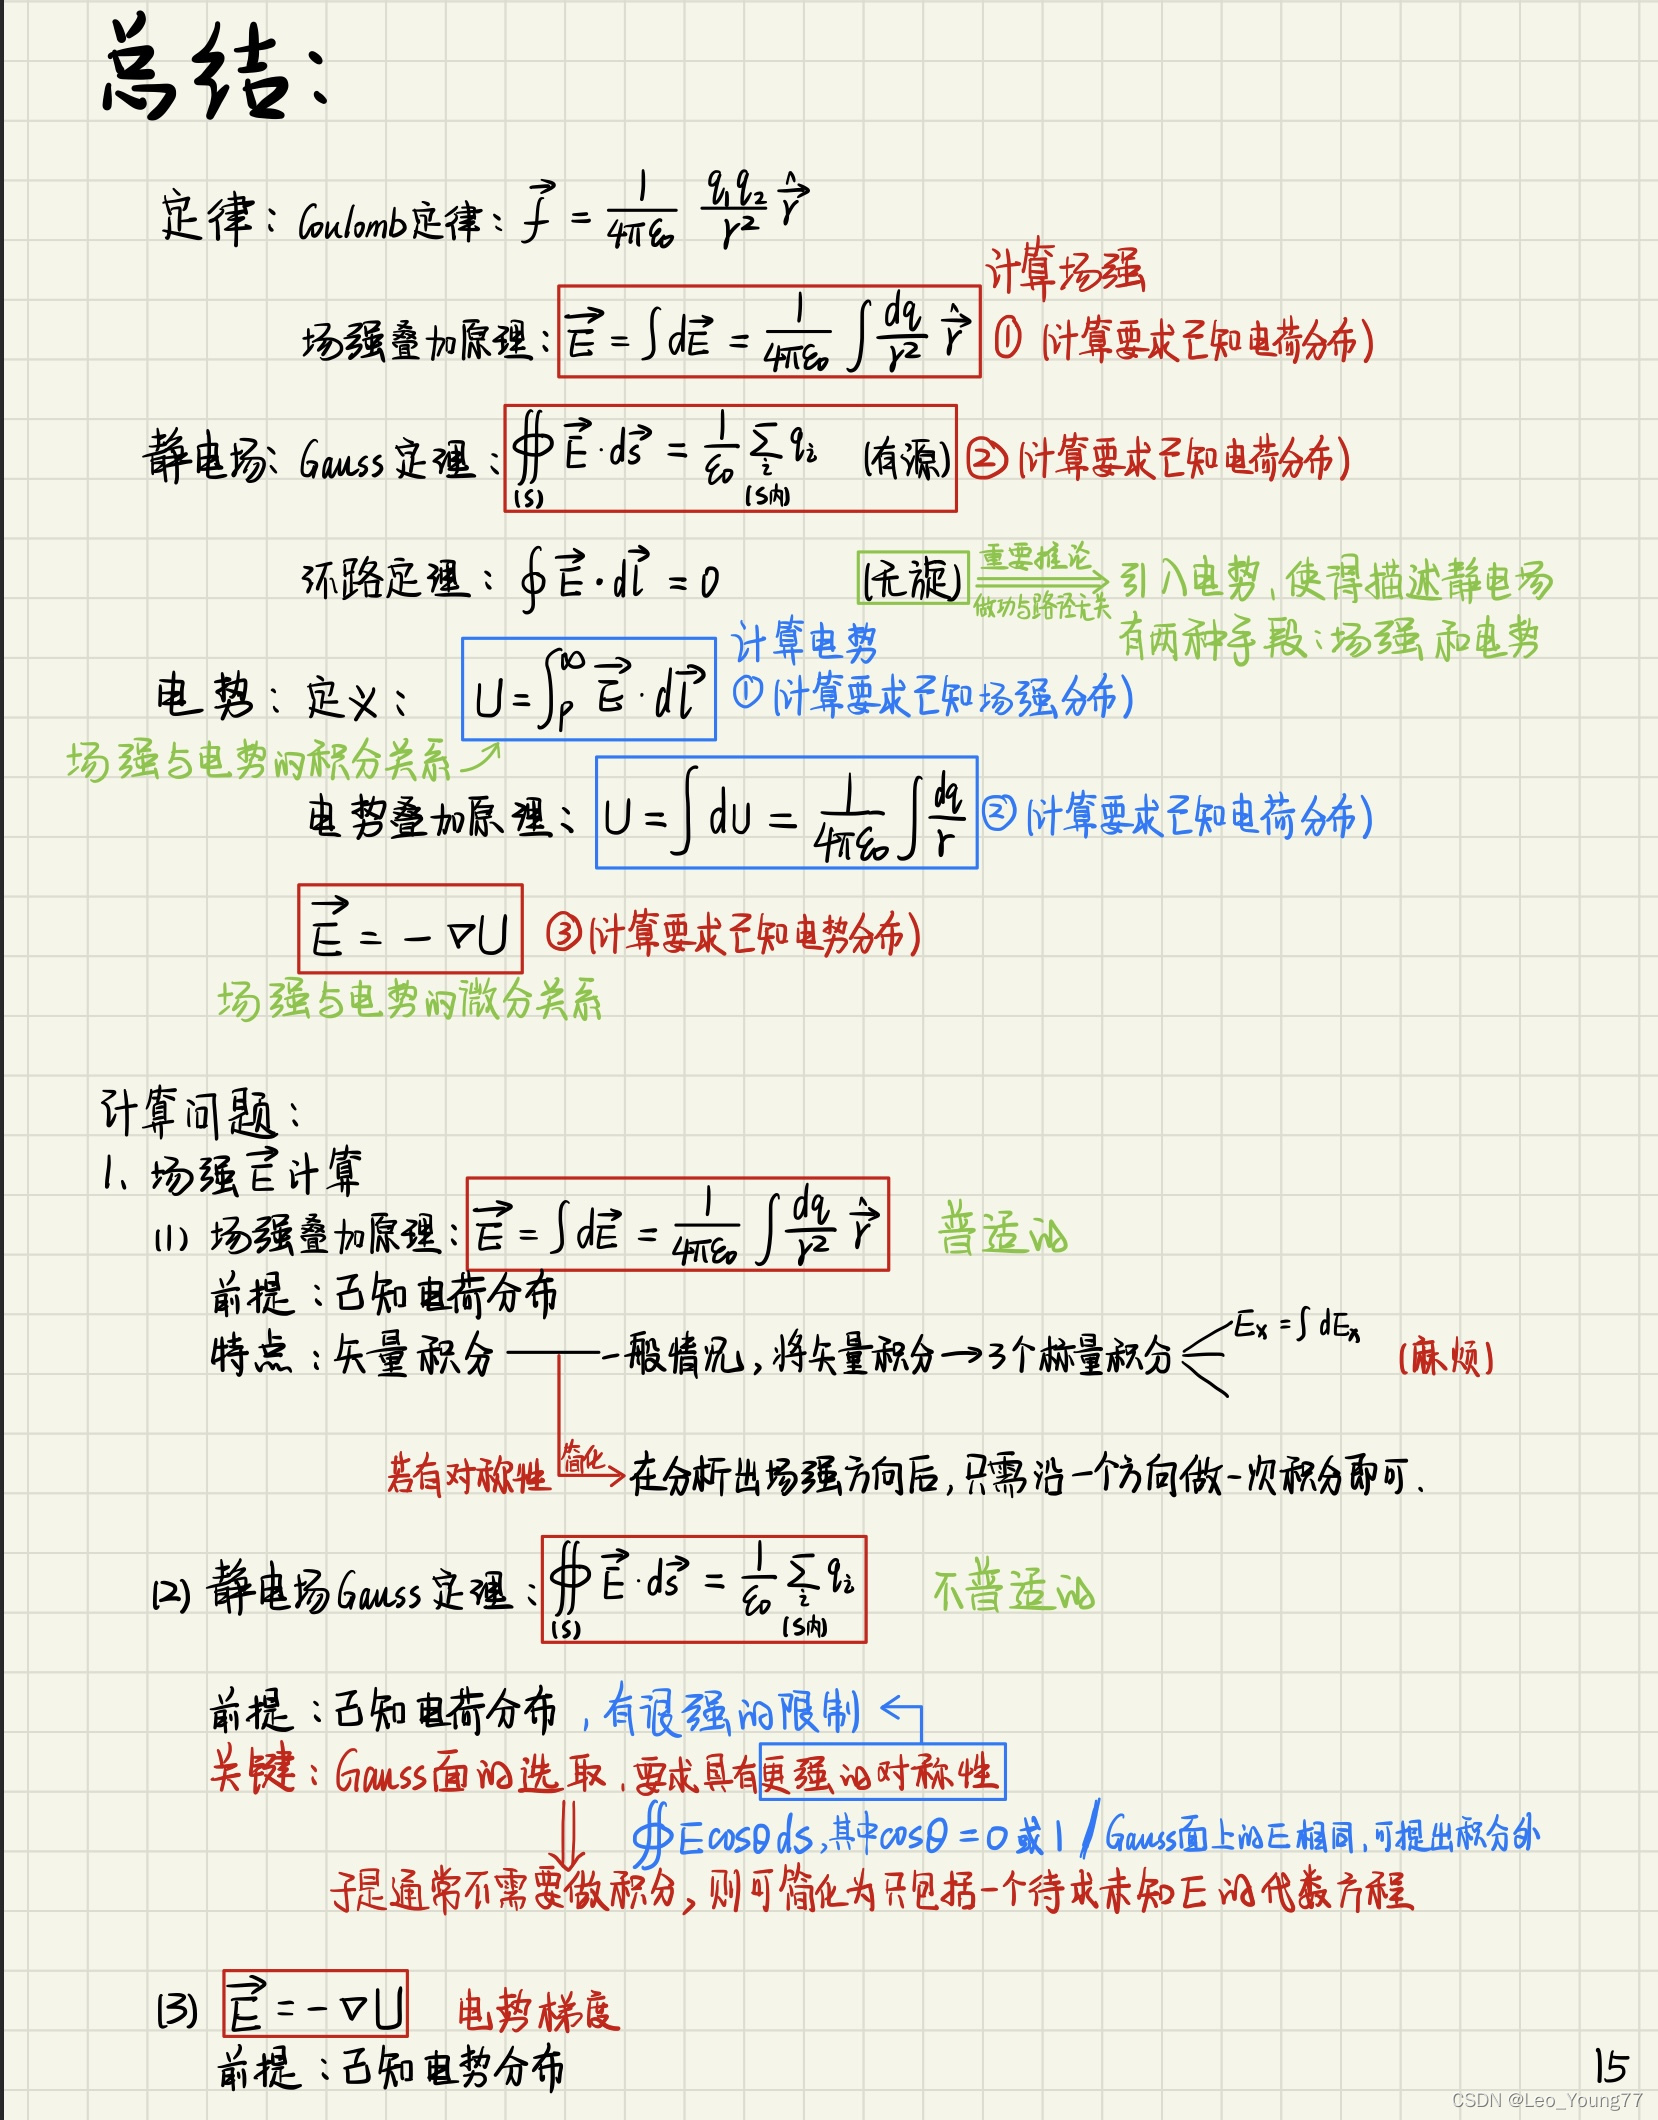 总结：
定律：Coulomb定律：f⃗ = 1/(4πε₀) q₁q₂/r² r̂
计算场强
场强叠加原理：E⃗ = ∫dE⃗ = 1/(4πε₀) ∫ dq/r² r̂ ① (计算要求已知电荷分布)
静电场：Gauss定理：∯(S) E⃗·dS⃗ = 1/ε₀ Σi(S内) qi (有源) ② (计算要求已知电荷分布)
环路定理：∮E⃗·dl⃗ = 0 (无旋) 重要推论 做功与路径无关 → 引入电势，使得描述静电场
有两种手段：场强和电势
计算电势
电势：定义：U = ∫p^∞ E⃗·dl⃗ ① (计算要求已知场强分布)
场强与电势的积分关系
电势叠加原理：U = ∫dU = 1/(4πε₀) ∫ dq/r ② (计算要求已知电荷分布)
E⃗ = -∇U ③ (计算要求已知电势分布)
场强与电势的微分关系
计算问题：
1、场强E⃗计算
(1) 场强叠加原理：E⃗ = ∫dE⃗ = 1/(4πε₀) ∫ dq/r² r̂ 普适的
前提：已知电荷分布
特点：矢量积分——一般情况，将矢量积分→3个标量积分 Ex = ∫dEx (麻烦)
若有对称性 简化→ 在分析出场强方向后，只需沿一个方向做一次积分即可.
(2) 静电场Gauss定理：∯(S) E⃗·dS⃗ = 1/ε₀ Σi(S内) qi 不普适的
前提：已知电荷分布，有很强的限制
关键：Gauss面的选取，要求具有更强的对称性
∯Ecosθds，其中cosθ = 0或1 / Gauss面上的E相同，可提出积分外
于是通常不需要做积分，则可简化为只包括一个待求未知E的代数方程
(3) E⃗ = -∇U 电势梯度
前提：已知电势分布
15
CSDN @Leo_Young77